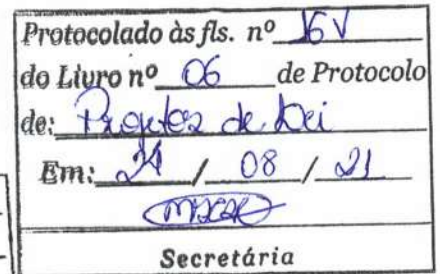 Protocolado às fls. nº 16V
do Livro nº 06 de Protocolo
de: Projetos de Lei
Em: 24 / 08 / 21
Secretária